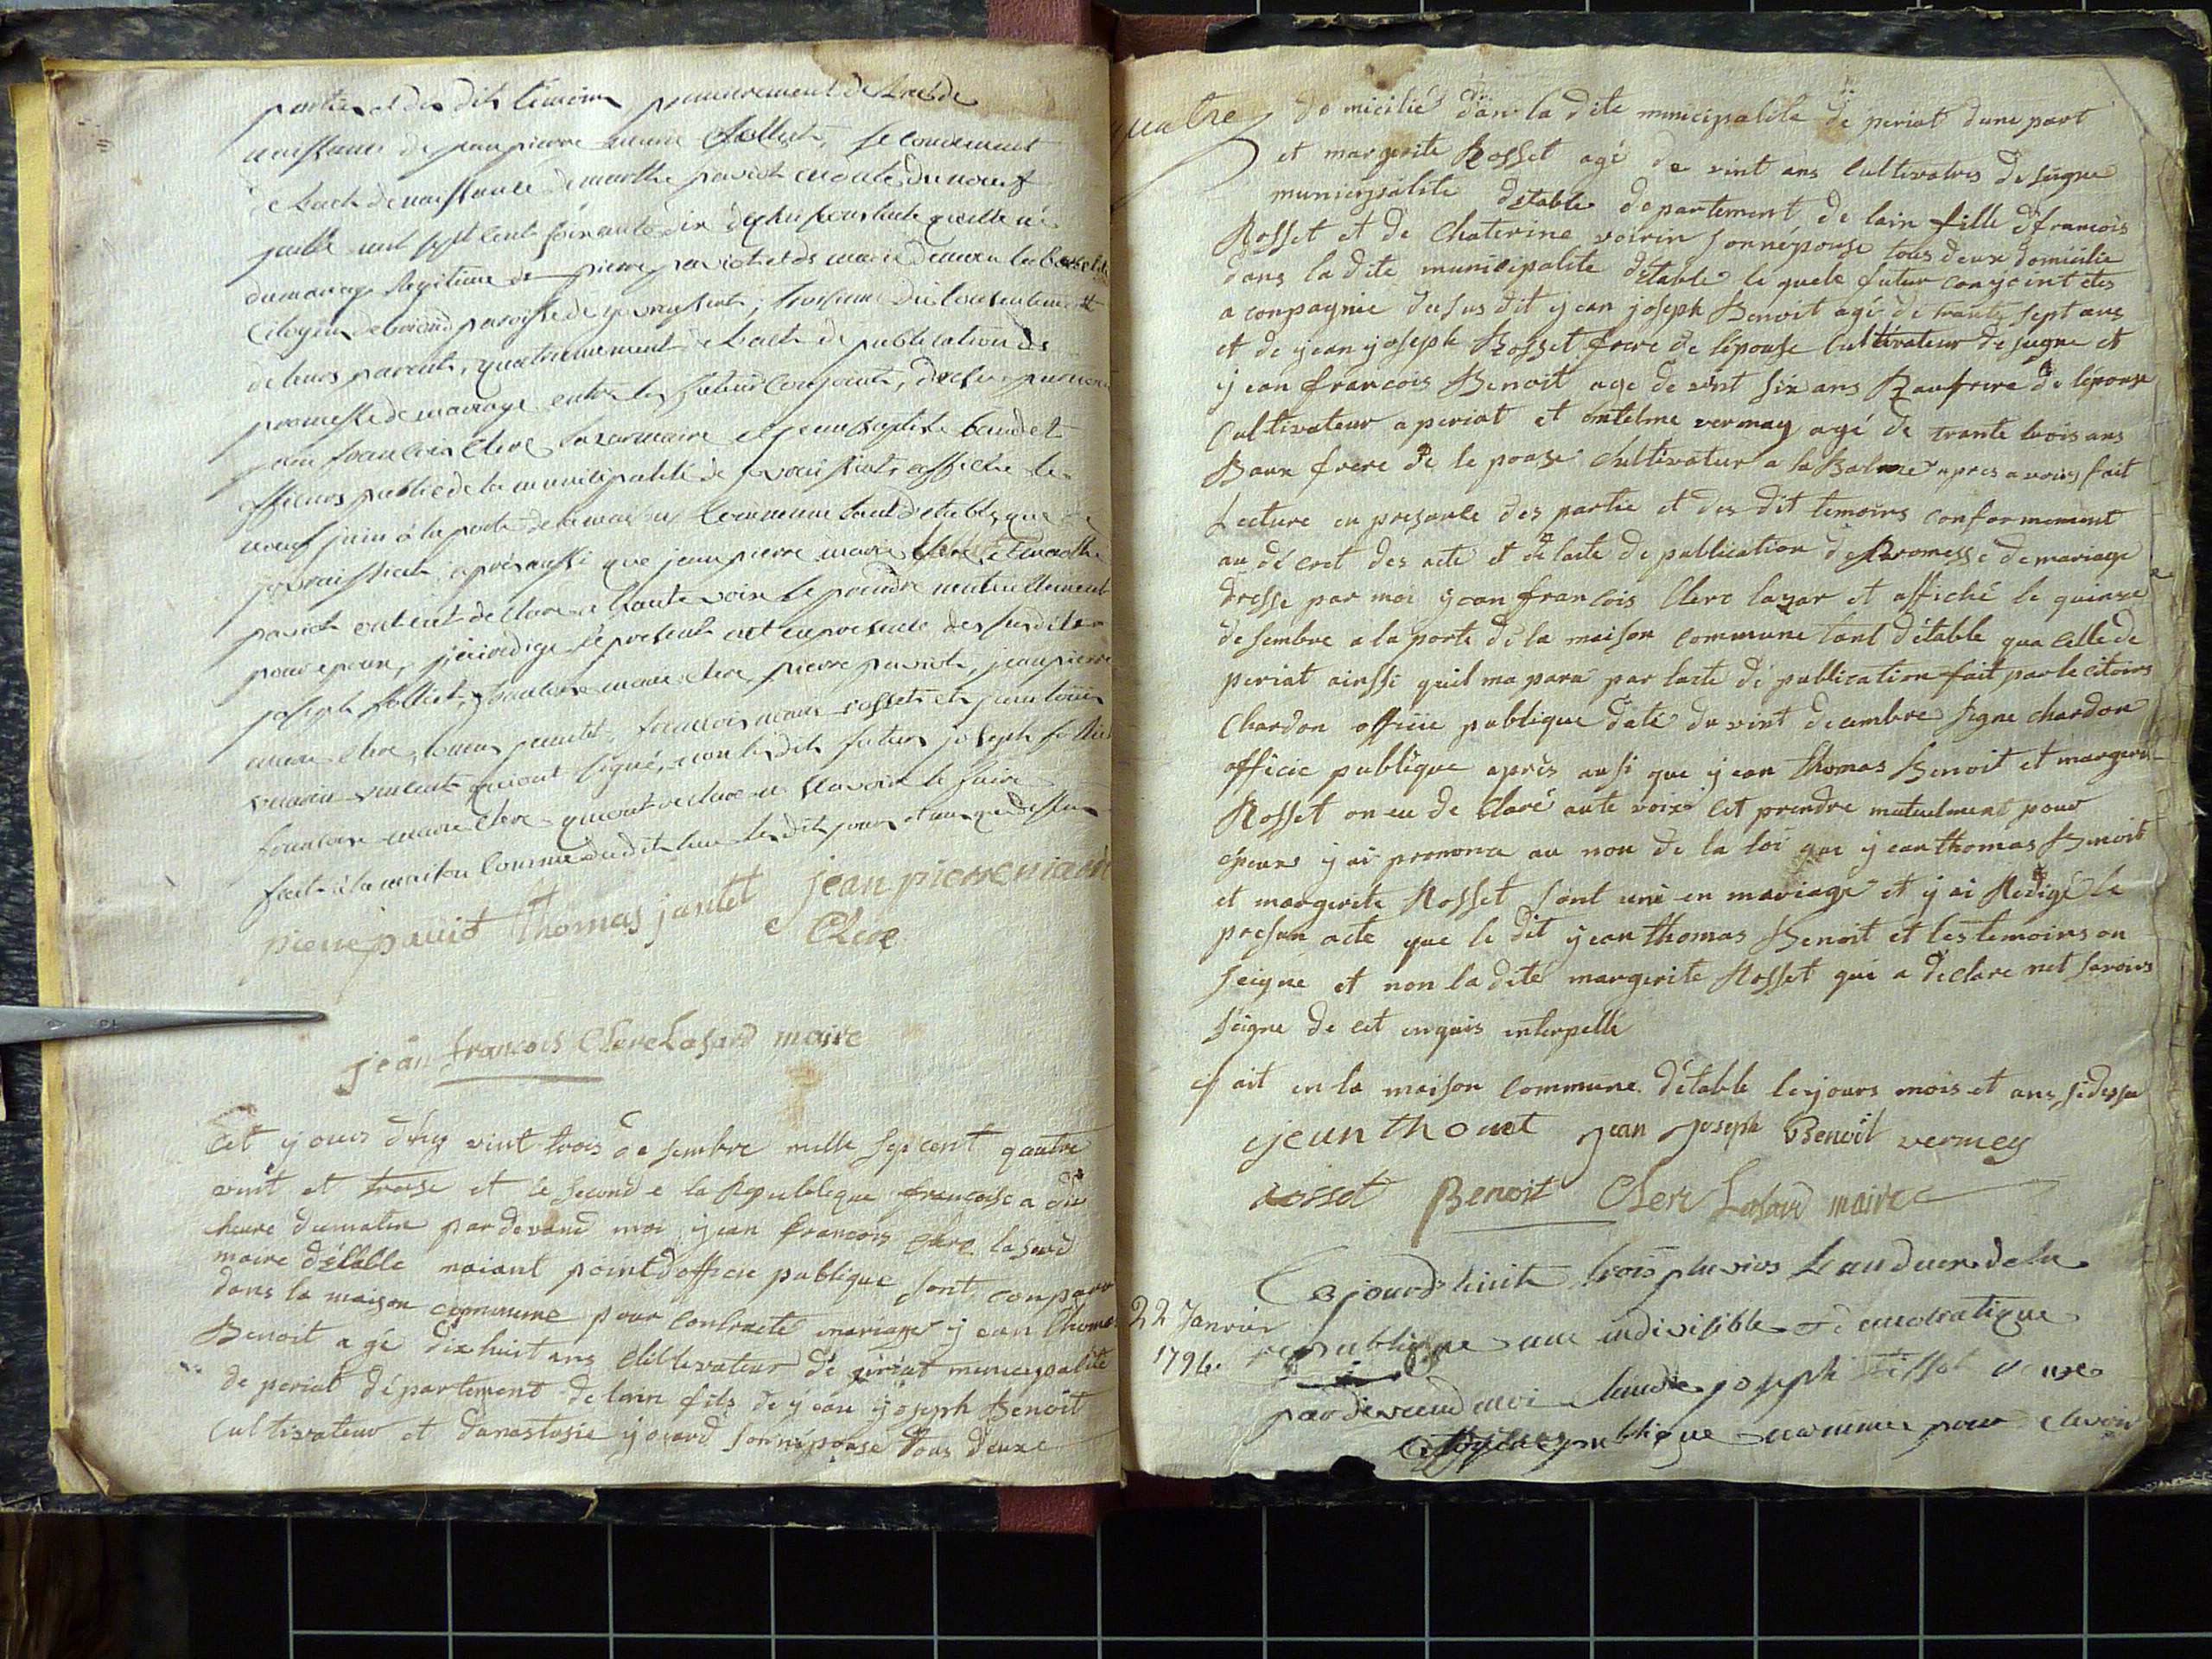 parties et des dits temoins premierement de lacte de
naissance de jean pierre marie follet, secondement
de lacte de naissance de marthe paviot en date du neuf
juillet mil sept cent soixante dix
du mariage legitime de pierre paviot et de marie
citoyen paroisse de troisieme du consentement
de leurs parents, quatriemement de lacte de publication de
promesse de mariage entre les futurs conjoints, dressé
jean francois clerc lazar maire et jean baptiste baudet
officiers public de la municipalité de affiché le
neuf juin à la porte de la maison commune tant d'etable que de
après aussi que jean pierre marie et marthe
paviot ont eut declare a haute voix se prendre mutuellement
pour epoux, j'ai redigé le present acte en presence des susdits
joseph follet, marie clerc pierre paviot, jean pierre
marie clerc, thomas jantet, francois marie rosset et jean louis
qui ont signé, non les dits futurs joseph follet
marie clerc qui ont declare ne scavoir le faire
fait à la maison commune du dit lieu les dits jours et an que dessus
pierre paviot thomas jantet jean pierre marie
Clerc
jean francois Clerc Lasard maire
Cet y ours dhuy vint trois de sembre mille sep cent quatre
vint et treise et le second e la Republique françoise a dix
heure du matin par devand moi y ean francois clerc lasard
maire d'étable naiant point dofficie publique sont conparu
dans la maison commune pour contracté mariage y ean thomas
Benoit a gé dix huit ans cultivateur de periat municipalité
de periat département de lain fils de y ean y oseph Benoit
cultivateur et danastasie y ocard sonnépouse tous deuxe
quatre
domicilié dan la dite municipalite de periat dune part
et margerite Rosset agé de vint ans cultivatris de sugne
municipalite détable departement de lain fille de francois
Rosset et de Chaterine voirin sonnépouse tous deux domicilie
dans la dite municipalite d'étable le quele futur conjoint etes
a conpagnie du sus dit y ean joseph Benoit agé de trante sept ans
et de y ean y oseph Rosset frere de lépouse Cultivateur de sugne et
y ean francois Benoit age de vint six ans Baufrere de lépouse
Cultivateur a periat et antelme vermay agé de trante trois ans
Baux frere de le pouse Cultivateur a la Balme apres a voirs fait
Lecture en presance des partie et des dit temoirs conformement
au décret des acte et de lacte de publication de Promesse de mariage
dresse par moi y ean francois Clerc lazar et affiché le quinze
desembre a la porte de la maison commune tant d'étable qua celle de
periat ainssi quil ma para par lacte de publication fait par le citoirs
Chardon officie publique daté du vint decembre signe chardon
officie publique après ausi que y ean thomas Benoit et margerite
Rosset on eu de claré aute voix cet prendre mutuelment pour
épeux y ai prononce au non de la loi que y ean thomas Benoit
et margerite Rosset sont uni en mariage et y ai Redigé le
presan acte que le dit y ean thomas Benoit et les temoins on
seigne et non la dite margerite Rosset qui a declare net savoirs
seigne de cet enquis interpellé
fait en la maison commune d'étable les jours mois et ans sidessu
jean thomet jean joseph Benoit vermey
rosset Benoit Clerc Lasard maire
22 Janvier
1794.
Cejourd'huit trois pluvios Lan deux de la
republique une indivisible democratique
pardevand moi claude joseph tissot
officier publique nommé pour